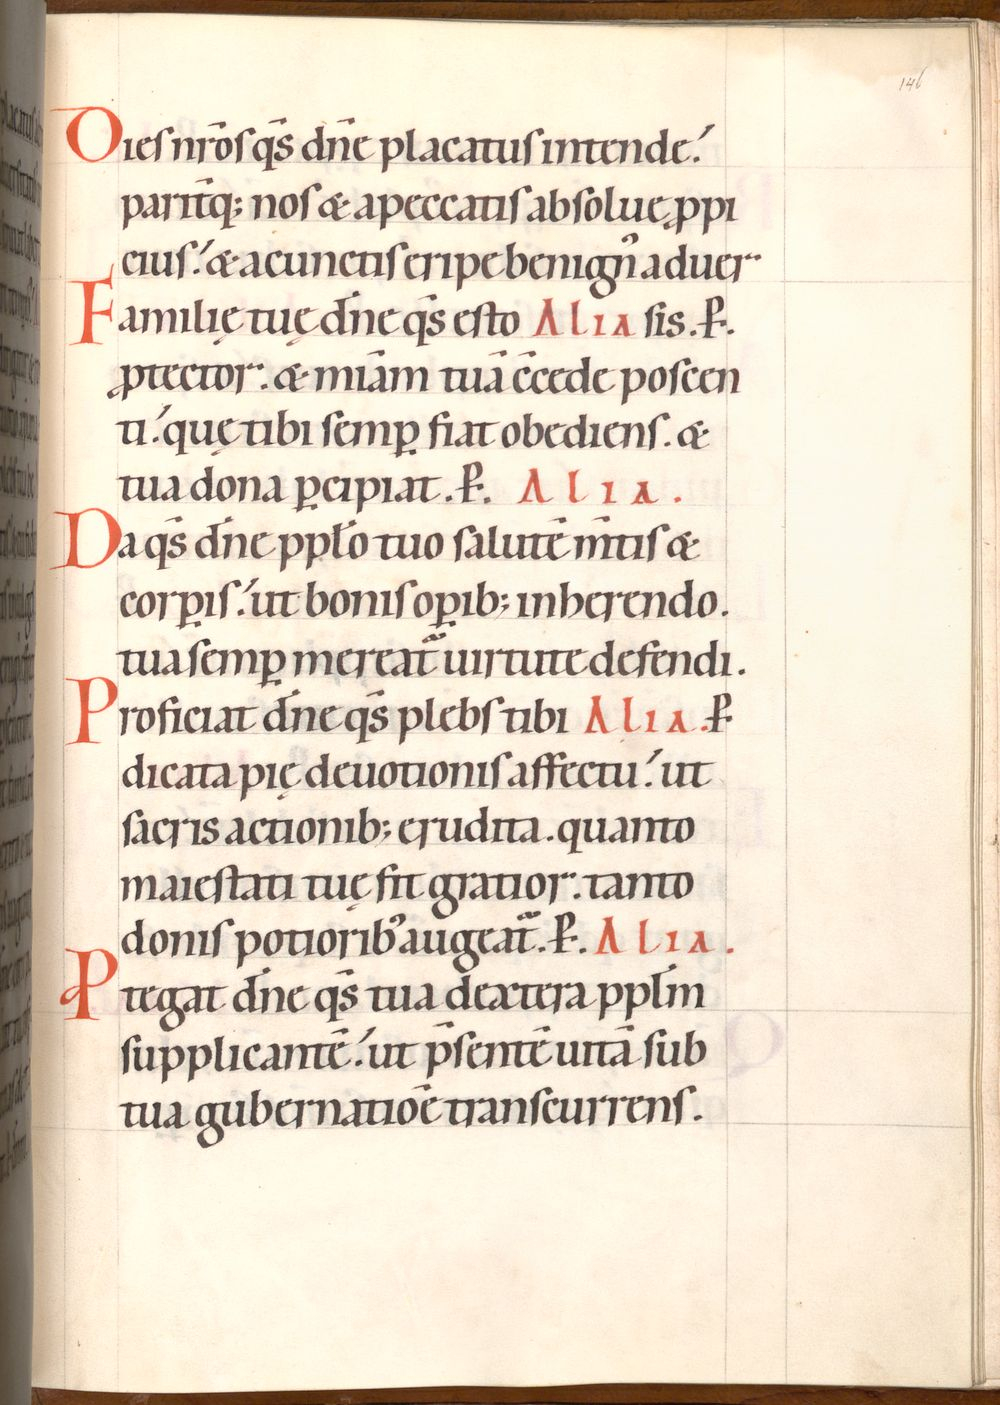 146
Dies nr̄os qs̄ dn̄e placatus intende.
pariꞇq; nos & apeccatis absolue ꝓpi
cius. & acunctis eripe benignꝰ aduer
Familię tuę dn̄e qs̄ esto Alia sis. P̶.
ꝓtector. & miām tuā c̄cede poscen
ti. quę tibi semꝑ fiat obediens. &
tua dona ꝑcipiat. P̶. Alia.
Da qs̄ dn̄e ppło tuo salutē m̄tis &
corꝑis. ut bonis oꝑib; inherendo.
tua semꝑ mereat̃ uirtute defendi.
Proficiat dn̄e qs̄ plebs tibi Alia. P̶
dicata pię deuotionis affectu. ut
sacris actionib; erudita. quanto
maiestati tuę fit gratior. tanto
donis potioribꝰ augeat̃. P̶. Alia.
Ꝓtegat dn̄e qs̄ tua dextera ppłm
supplicantē. ut p̄sentē uitā sub
tua gubernatiōe transcurrens.